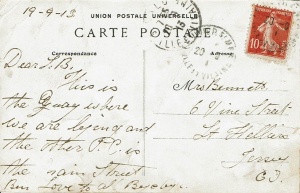 19-9-13
UNION POSTALE UNIVERSELLE
CARTE POSTALE
Correspondance
Adresse
Dear S.B.
This is
the Quay where
we are lying and
the other P.C. is
the main Street
Love to
Mrs Bennett
6 Vine Street
St Helier
Jersey
C.I.
10